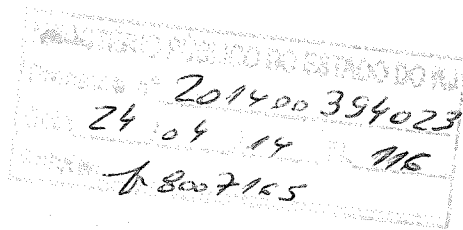 MINISTÉRIO PÚBLICO DO ESTADO DO RJ
Processo nº 201400394023
24 04 14 116
8007165